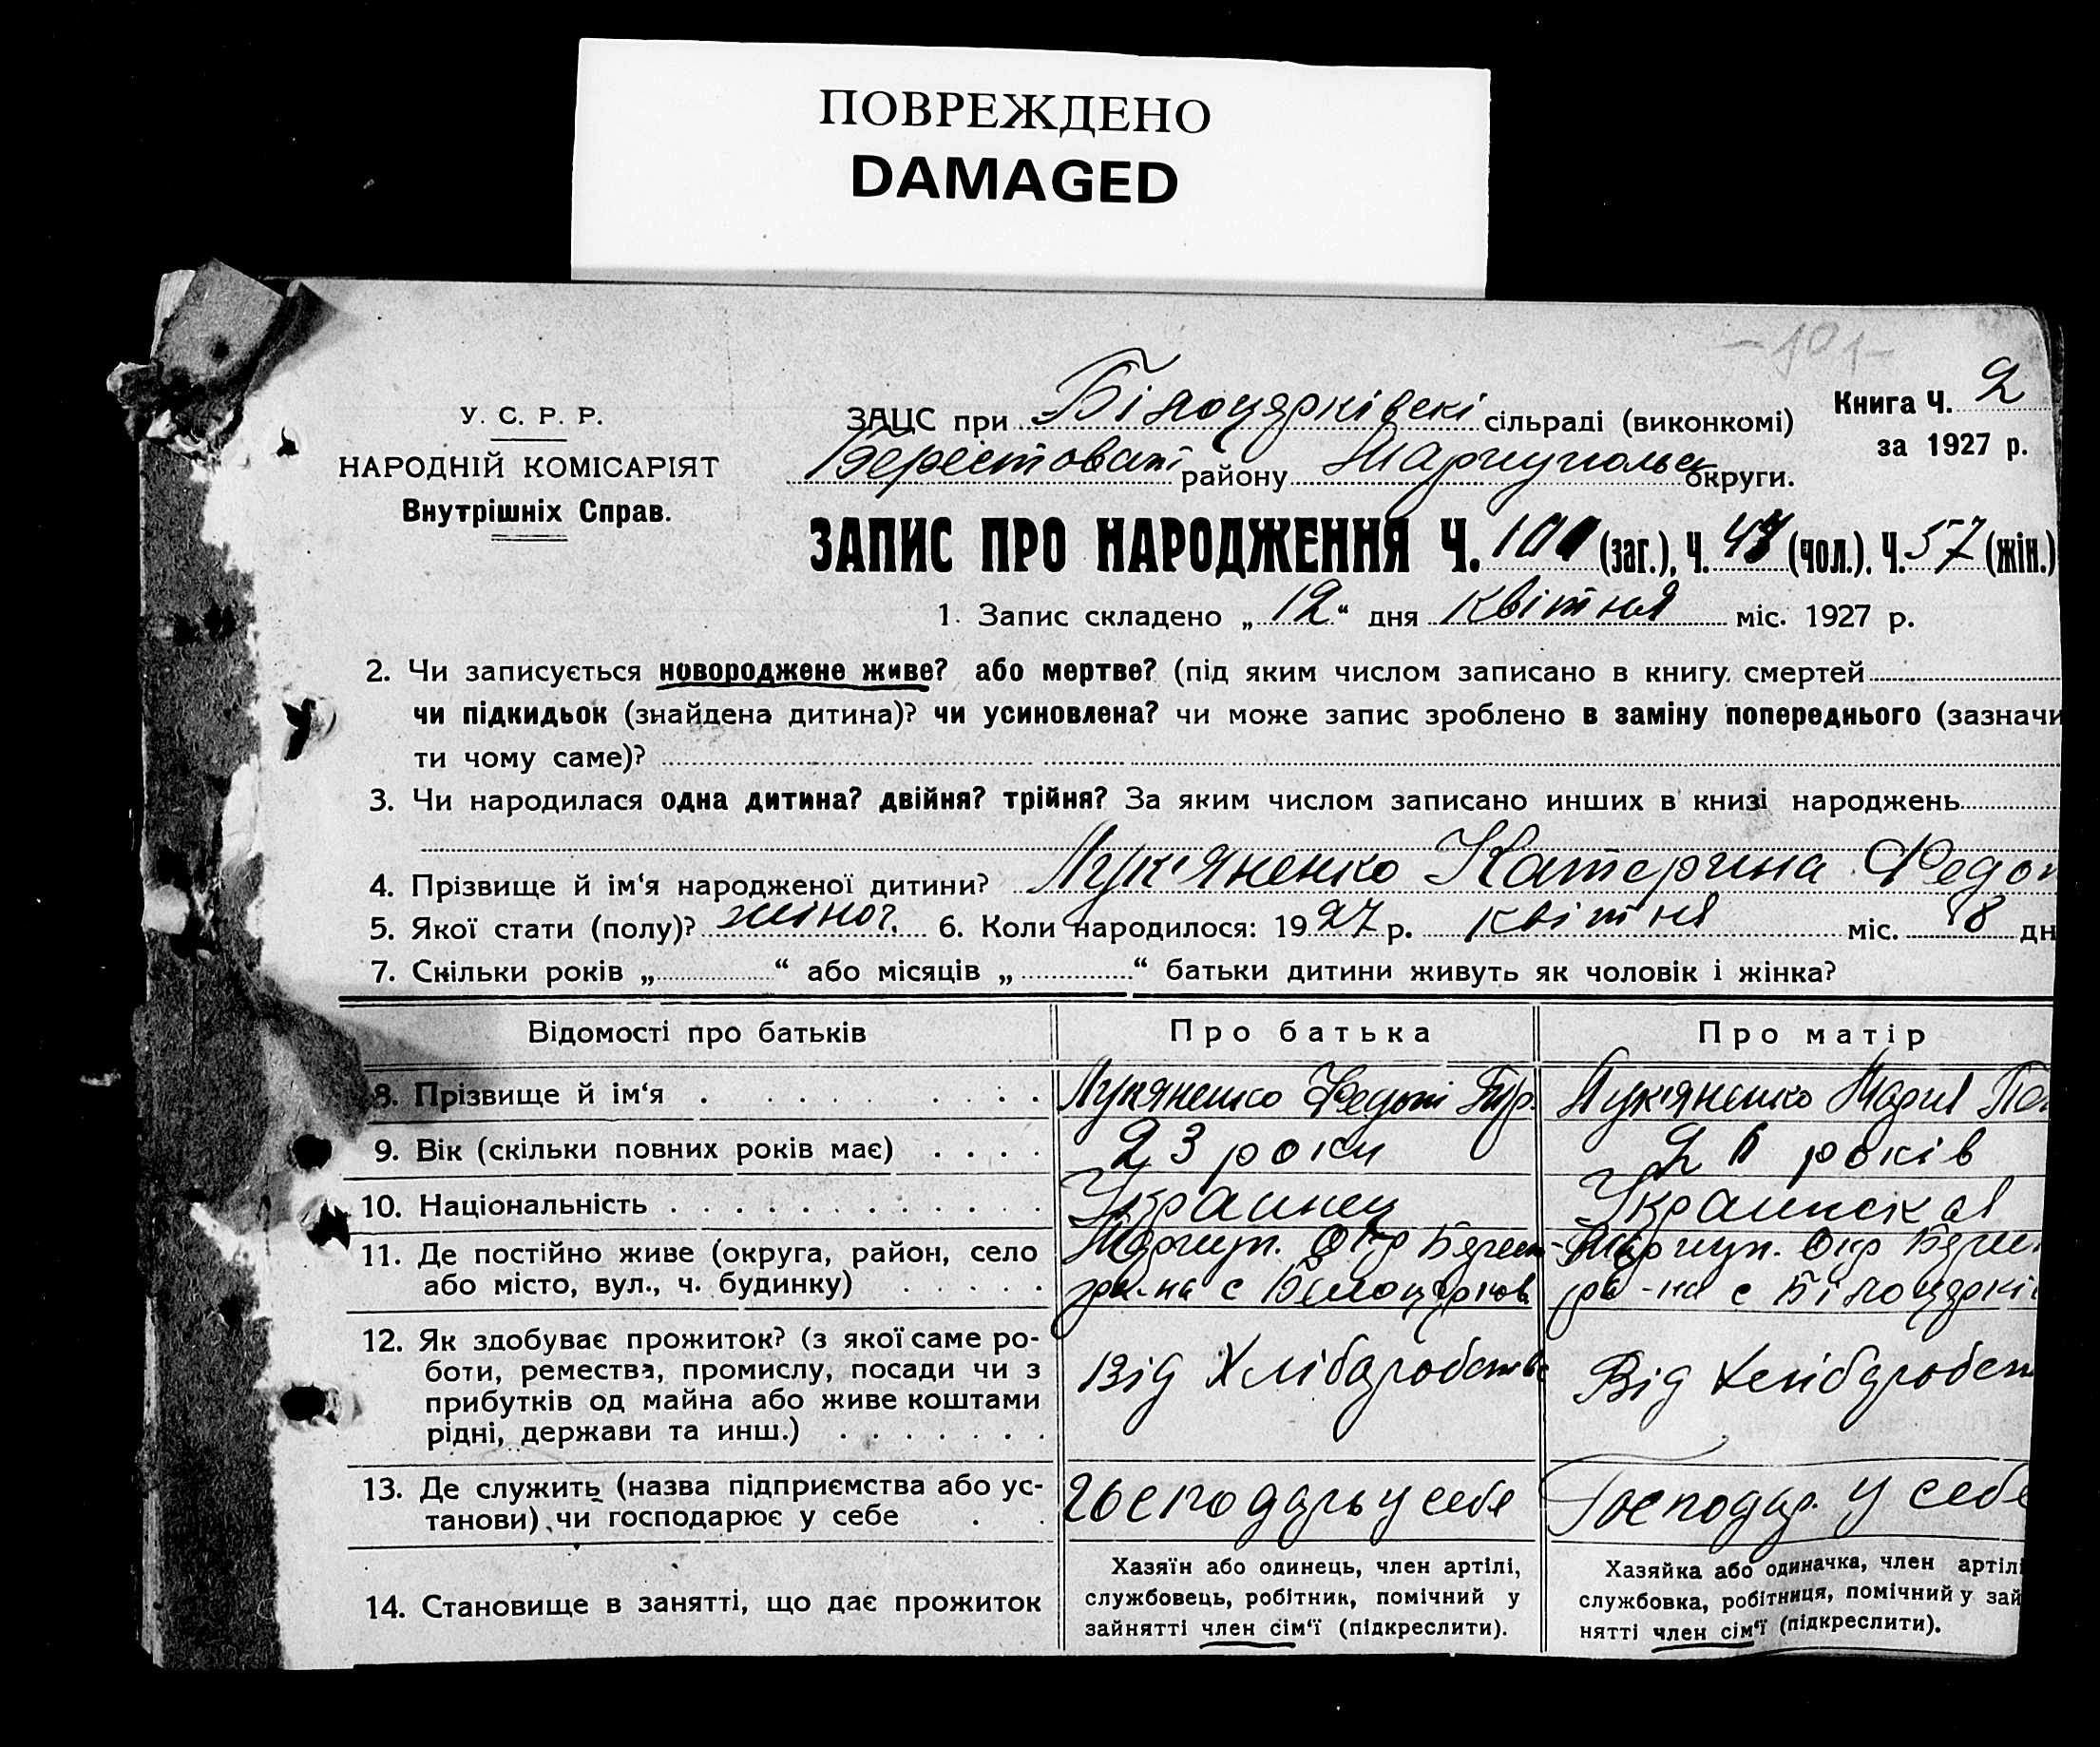 ПОВРЕЖДЕНО
DAMAGED
-101-
У. С. Р. Р.
НАРОДНІЙ КОМІСАРІЯТ
Внутрішніх Справ.
ЗАЦС при Білоцярківскі сільраді (виконкомі)
Книга Ч. 2
за 1927 р.
Берестоват району Маріупольск округи.
ЗАПИС ПРО НАРОДЖЕННЯ Ч. (заг.), Ч. (чол.). Ч. 57 (жін.)
1. Запис складено „12“ дня квітня міс. 1927 р.
2. Чи записується новороджене живе? або мертве? (під яким числом записано в книгу смертей
чи підкидьок (знайдена дитина)? чи усиновлена? чи може запис зроблено в заміну попереднього (зазначи
ти чому саме)?
3. Чи народилася одна дитина? двійня? трійня? За яким числом записано инших в книзі народжень
4. Прізвище й ім‘я народженої дитини? Лук'яненко Катерина Федот
5. Якої стати (полу)? жіноч. 6. Коли народилося: 1927 р. квітня міс. 8 дн
7. Скільки років „ “ або місяців „ “ батьки дитини живуть як чоловік і жінка?
Відомості про батьків
Про батька
Про матір
8. Прізвище й ім‘я
Лукяненко Федот
Лук'яненко Мария
9. Вік (скільки повних років має)
23 роки
років
10. Національність
Украинец
Украинская
11. Де постійно живе (округа, район, село
або місто, вул., ч. будинку)
Мариуп. Окр Берест
ра-на с Білоцярків
Мариуп. Окр Берест
ра-на с Білоцяркі
12. Як здобуває прожиток? (з якої саме ро-
боти, ремества, промислу, посади чи з
прибутків од майна або живе коштами
рідні, держави та инш.)
Від Хлібаробства
Від Хлібаробст
13. Де служить (назва підприємства або ус-
танови) чи господарює у себе
Господарь у себя
Господар. у себе
14. Становище в занятті, що дає прожиток
Хазяїн або одинець, член артілі,
службовець, робітник, помічний у
зайнятті член сім‘ї (підкреслити).
Хазяйка або одиначка, член артілі
службовка, робітниця, помічний у зай
нятті член сім‘ї (підкреслити).